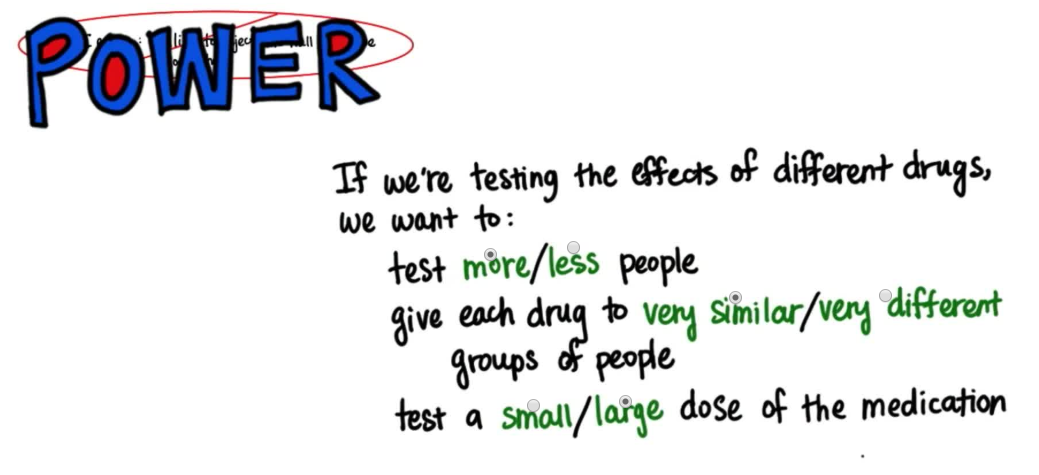 POWER
If we're testing the effects of different drugs,
we want to:
test more/less people
give each drug to very similar/very different
groups of people
test a small/large dose of the medication